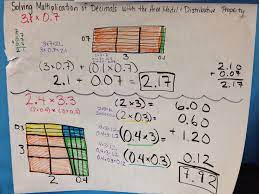 Solving Multiplication of Decimals with the Area Model & Distributive Property
3.1 x 0.7
0.7
3
(3×0.7) + (0.1×0.7)
2.1 + 0.07 = 2.17
2.10
+ 0.07
2.17
2.4 × 3.3
0.3
3
2
0.4
(2×3) = 6.00
(2×0.3) = 0.60
(0.4×3) = + 1.20
(0.4×0.3) 0.12
7.92